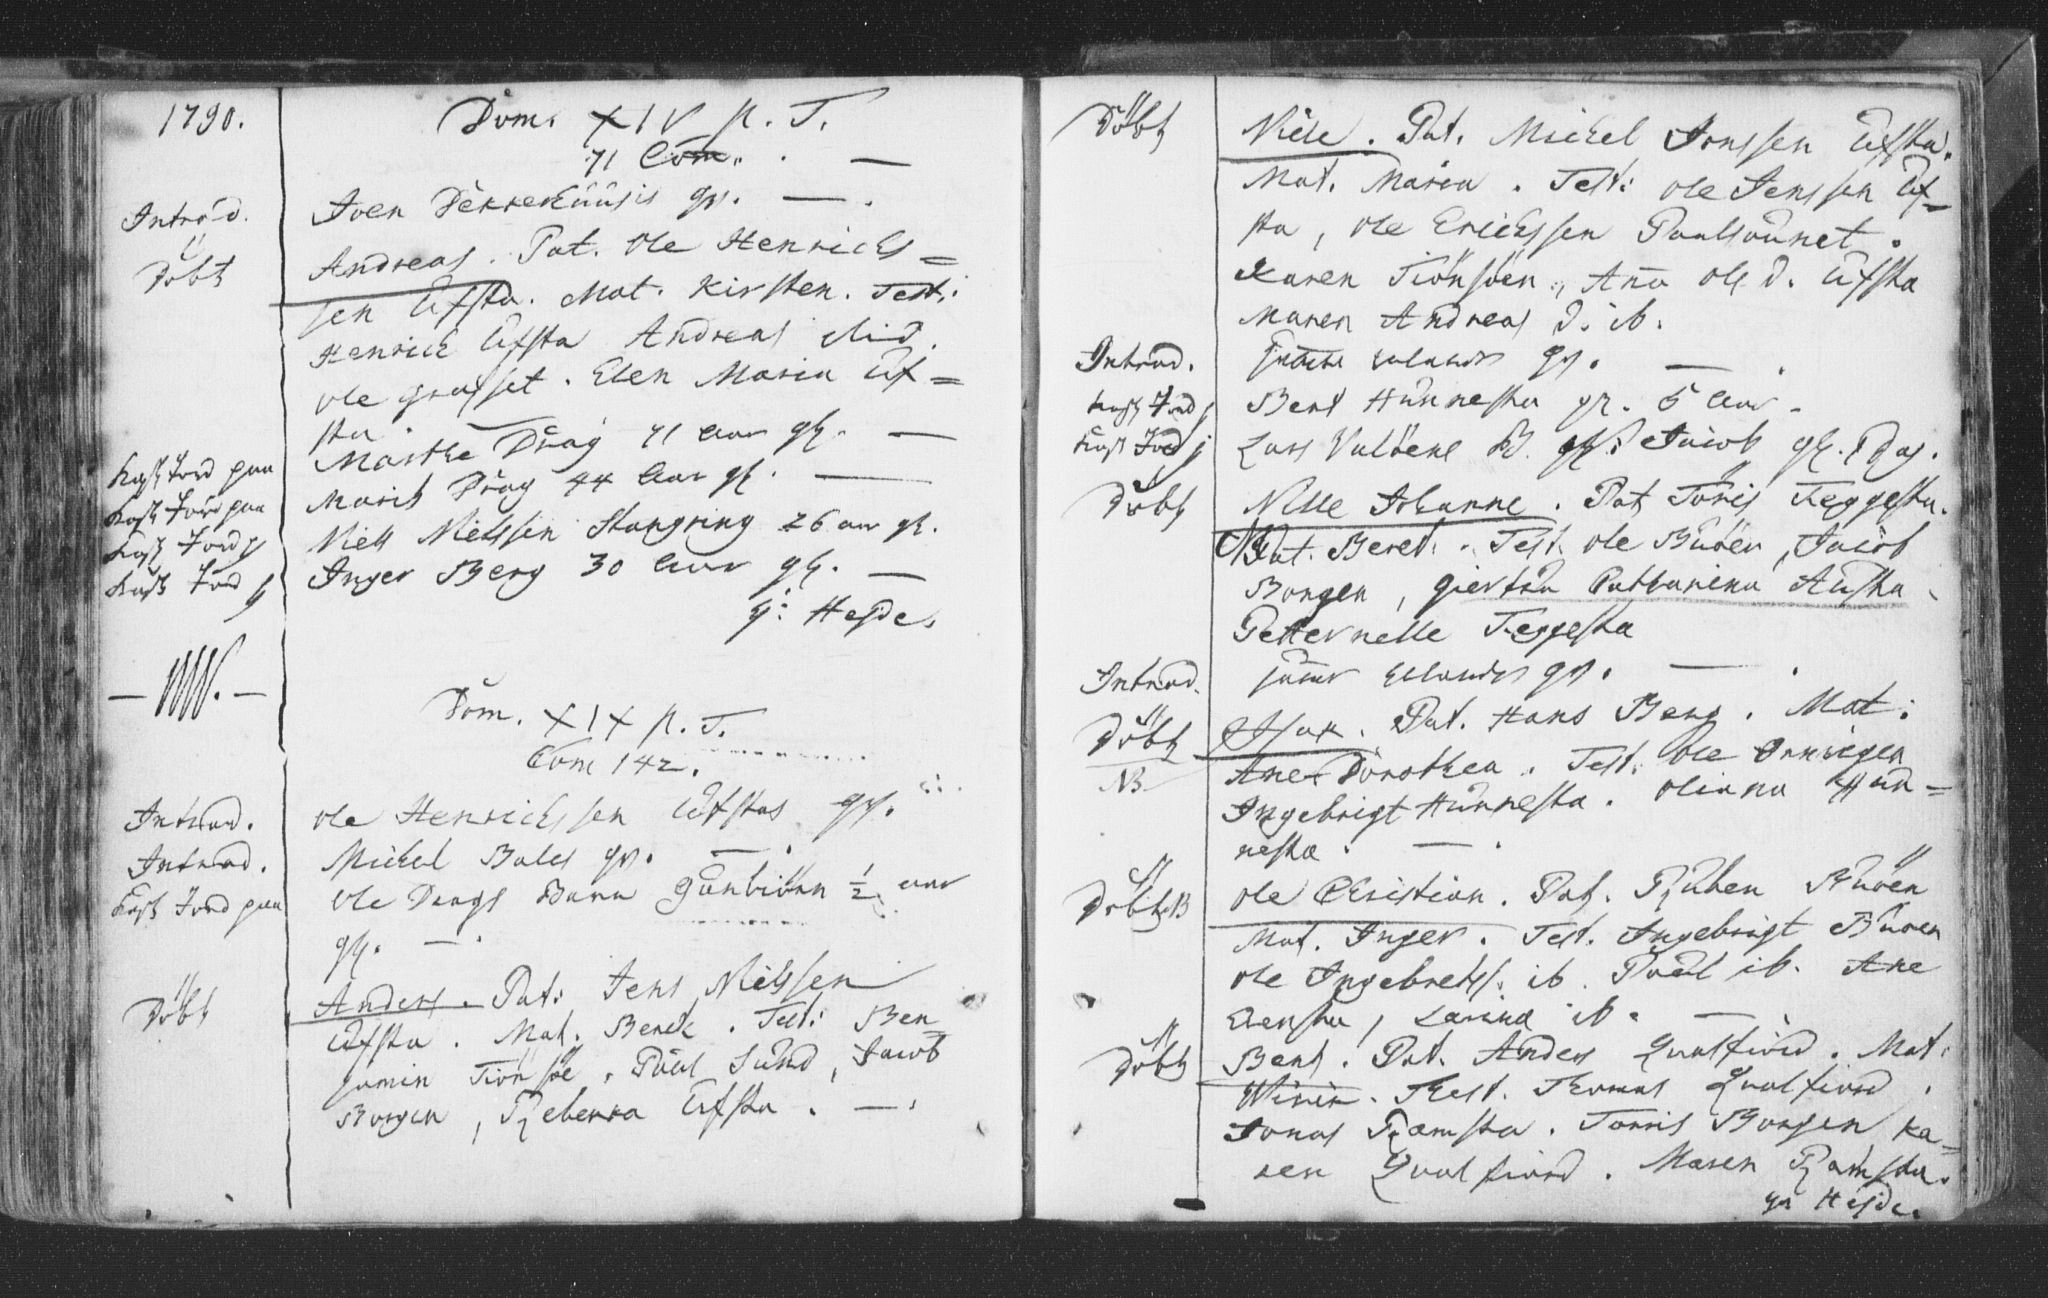 1790.
Dom. XIV p. T.
71 Com. —
Introd. Iver gv. — .
Döbt Andreas. Pat. Ole Henrichs=
sen Efsta. Mat. Kirsten. Test:
Henrich Efsta Andreas
Ole Grafset. Elen Maria Ef=
sta. —
Kast Jord paa Marthe Drag 71 Aar gl. —
Kast Jord paa Marit Drag 44 Aar gl. —
Kast Jord p Niels Nielssen Stangring 26 aar gl.
Kast Jord p Inger Berg 30 Aar gl. —
Hejde.
Dom. XIX p. T.
Com 142.
Introd. Ole Henrichssen Efstas gv.
Introd. Michel Bales gv. — .
Kast Jord paa Ole Drags Barn Gunbiörn ½ aar
gl. — .
Döbt Anders. Pat: Jens Nielssen
Efsta. Mat. Beret. Test: Ben=
jamin Tiönsöe, Povel Sund, Jacob
Borgen, Rebekka Efsta. — .
Döbt Pat. Michel Jonssen Efsta.
Mat. Maria. Test: Ole Jenssen Ef=
sta, Ole Erichssen Poulsvanet.
Karen Tiönsöen, Ana Ols D. Efsta
Maren Andreas D. ib.
Introd. gv. — .
Kast Jord p Bent Hunnesta gl. 5 Aar.
Kast Jord p Lars B. Jacob gl. 1 Dag.
Döbt Nille Johanne. Pat Toris Teggesta.
Mat. Beret. Test. Ole Buöen, Jacob
Borgen, Giertru Catharina
Petternelle Teggesta
Introd. gv. — .
Döbt Pat. Hans Berg. Mat:
NB Ane Dorothea. Test: Ole
Ingebrigt Hunnesta. Oliana Hun=
nesta. — .
Döbt NB Ole Christian. Pat. Ruben Buöen
Mat. Inger. Test. Ingebrigt Buöen
Ole Ingebrets. ib. Povel ib. Ane
Elensta, Larina ib. —
Döbt Bent. Pat. Anders Qvalfiord. Mat:
Test. Thomas Qvalfiord.
Jonas Ramsta. Torris Borgen Ka=
ren Qvalfiord. Maren Ramsta.
Hejde.